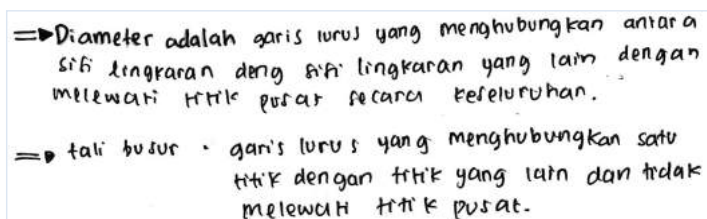 ⇒ Diameter adalah garis lurus yang menghubungkan antara
sisi lingkaran deng sisi lingkaran yang lain dengan
melewati titik pusat secara keseluruhan.
⇒ tali busur • garis lurus yang menghubungkan satu
titik dengan titik yang lain dan tidak
melewati titik pusat.